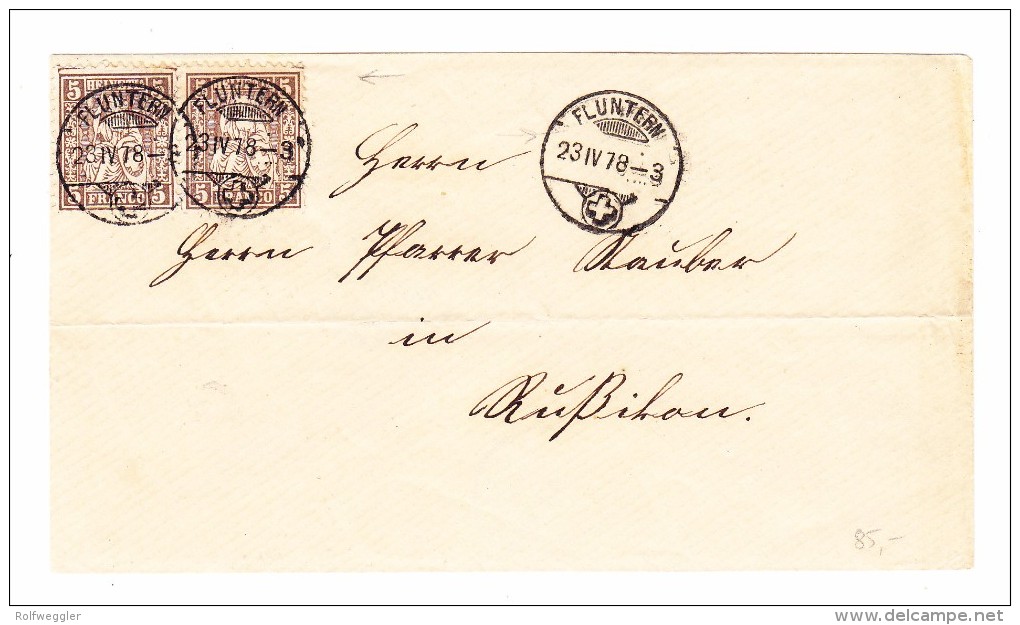 5 HELVETIA 5
5 FRANCO 5
FLUNTERN
23 IV 78 –
5 5
5 FRANCO
FLUNTERN
23 IV 78 – 3
FLUNTERN
23 IV 78 – 3
Herrn
Herrn Pfarrer Stauber
in
Rußikon.
85,–
Rolfweggler
delcampe.net